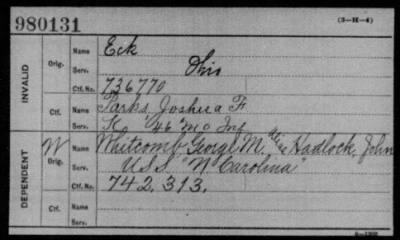 980131 (3-H-4)
INVALID Orig. Name Eck
Serv. Ohio
Ctf. No. 736770
Ctf. Name Parks, Joshua F
Serv. K. "46" Mo Inf
DEPENDENT W Orig. Name Whitcomb George M. alias Hadlock, John
Serv. U.S.S. "N Carolina"
Ctf. No. 742,313.
Ctf. Name
Serv.